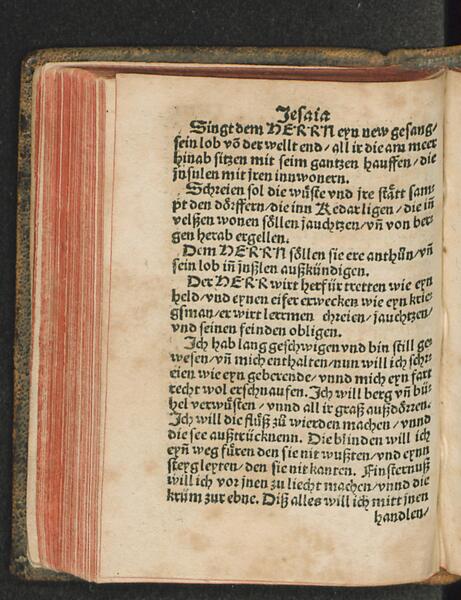 Jesaia
Singt dem HERRN eyn new gesang/
sein lob vō der wellt end/ all ir die am meer
hinab sitzen mit seim gantzen hauffen/ die
jnsulen mit jren innwonern.
Schreien sol die wüste vnd jre stätt sam-
pt den dörffern/ die inn Kedar ligen/ die iñ
velßen wonen söllen jauchtzen/ vñ von ber-
gen herab ergellen.
Dem HERRN söllen sie ere anthůn/ vñ
sein lob iñ jnßlen außkündigen.
Der HERR wirt herfür tretten wie eyn
held/ vnd eynen eifer erwecken wie eyn krie-
gsman/ er wirt lerrmen schreien/ jauchtzen/
vnd seinen feinden obligen.
Jch hab lang geschwigen vnd bin still ge-
wesen/ vñ mich enthalten/ nun will ich schr-
eien wie eyn geberende/ vnnd mich eyn fart
recht wol erschnaufen. Jch will berg vñ bü-
hel verwüsten/ vnnd all ir graß außdörren.
Jch will die flüß zů wierden machen/ vnnd
die see außtrücknenn. Die blinden will ich
eyñ weg füren den sie nit wußten/ vnd eynn
steyg leyten/ den sie nit kanten. Finsternuß
will ich vor jnen zu liecht machen/ vnnd die
krüm zur ebne. Diß alles will ich mitt jnen
handlen/